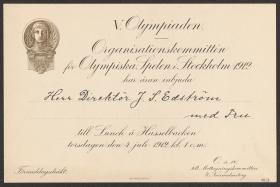 V. Olympiaden.
Organisationskommittén
för Olympiska Spelen i Stockholm 1912
har äran inbjuda
Herr Direktör J. S. Edström
med Fru
till Lunch å Hasselbacken
torsdagen den 4 juli 1912 kl. 1 e.m.
O. s. a.
till Mottagningskommittén